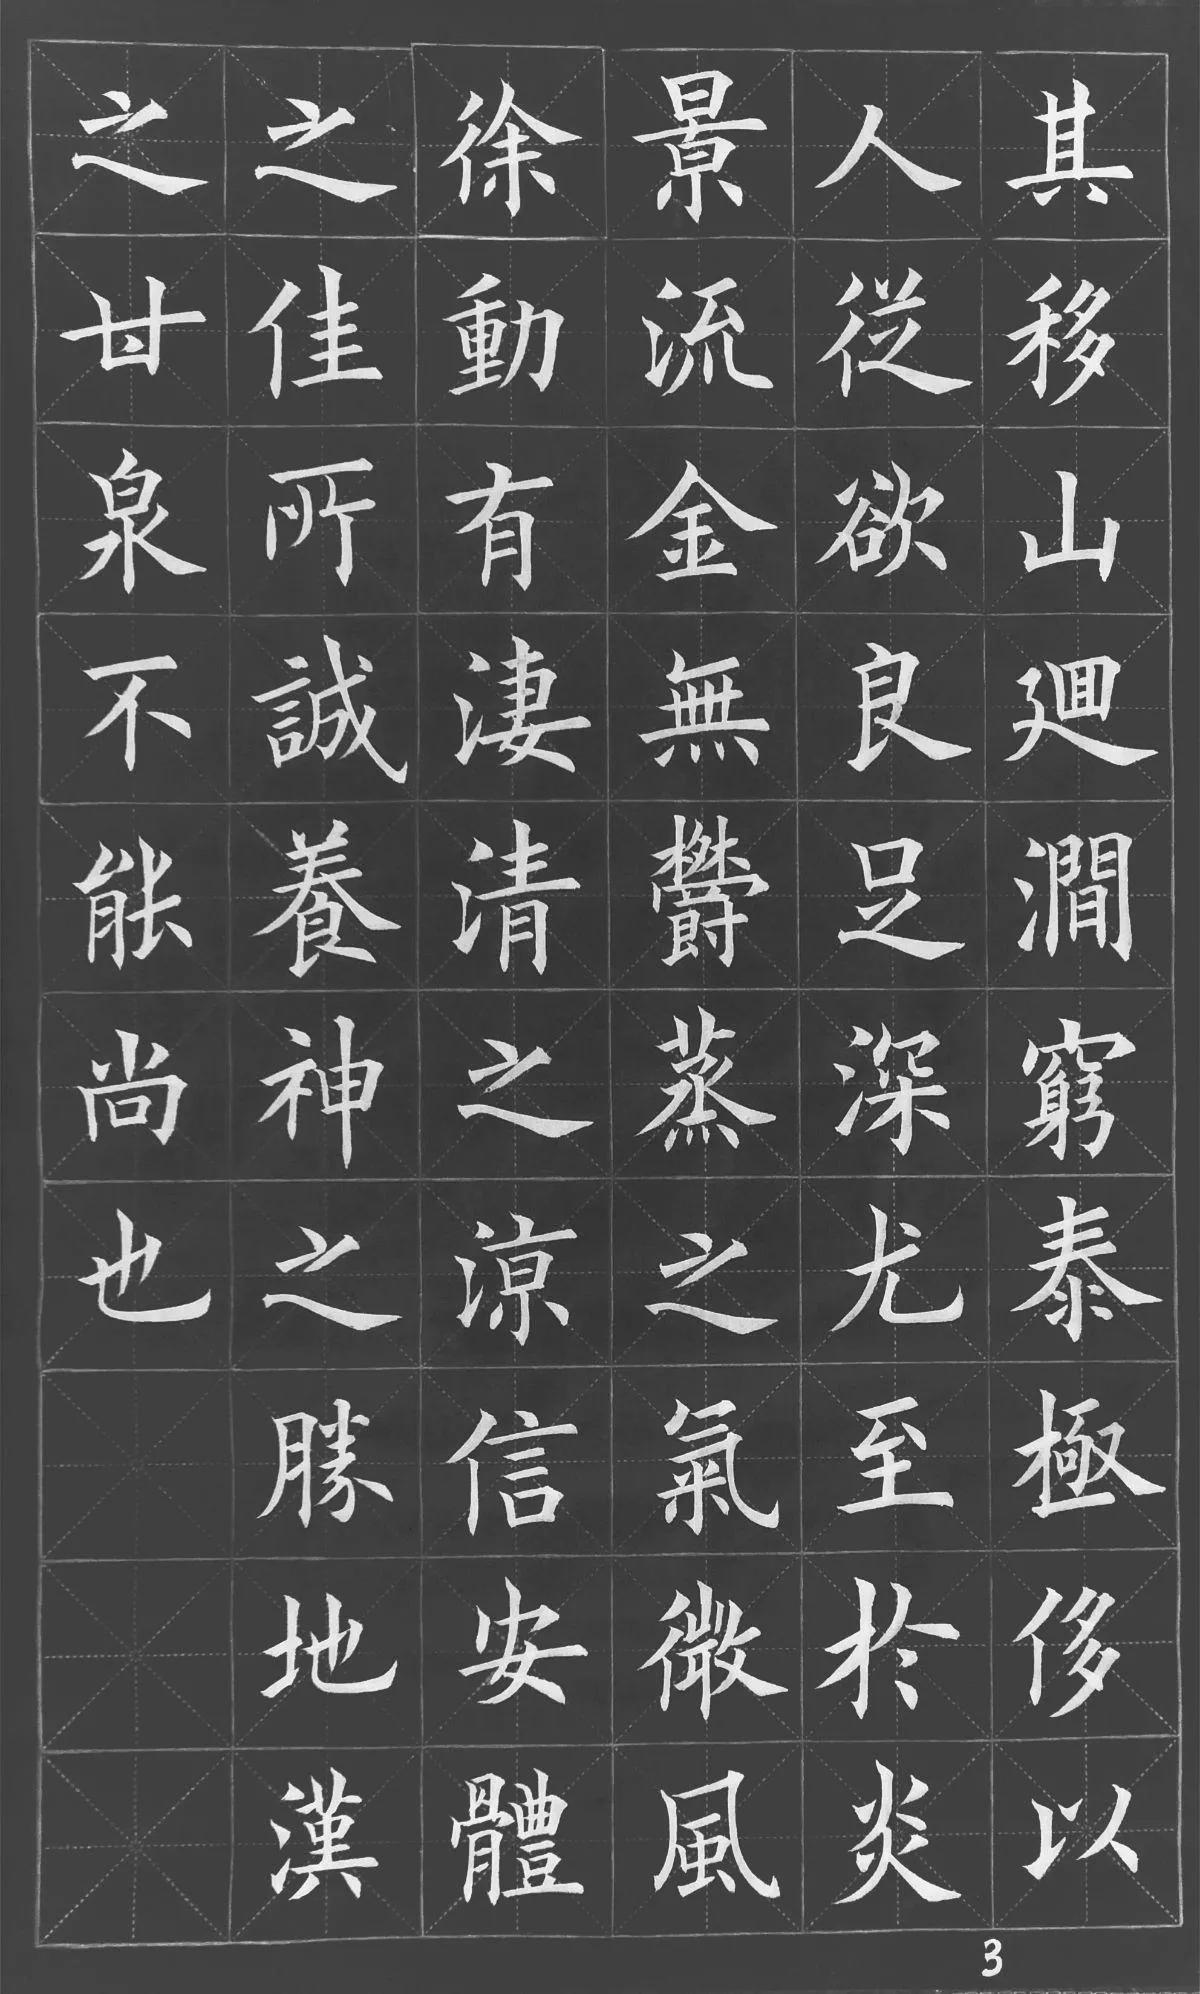 其移山廻澗窮泰極侈以
人從欲良足深尤至於炎
景流金無欝蒸之氣微風
徐動有淒清之涼信安體
之佳所誠養神之勝地漢
之甘泉不能尚也
3